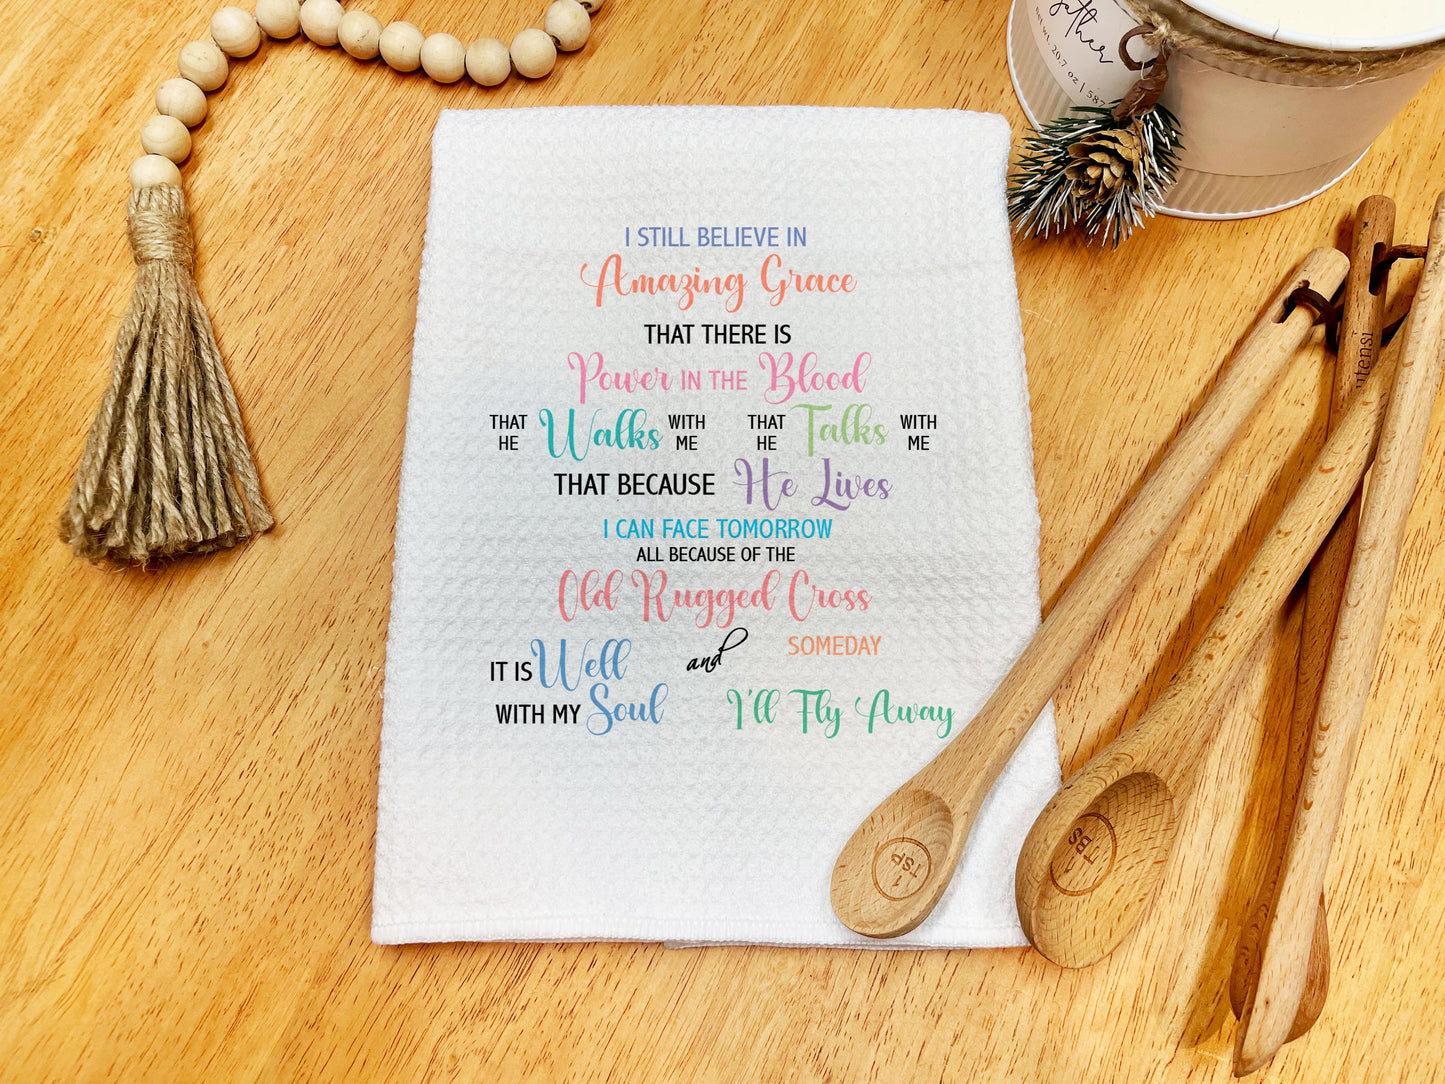 I STILL BELIEVE IN
Amazing Grace
THAT THERE IS
Power IN THE Blood
THAT HE Walks WITH ME THAT HE Talks WITH ME
THAT BECAUSE He Lives
I CAN FACE TOMORROW
ALL BECAUSE OF THE
Old Rugged Cross
IT IS Well
WITH MY Soul
and
SOMEDAY
I'll Fly Away
gather
net wt. 20.7 oz | 587
utensi
1 TSP
TBS